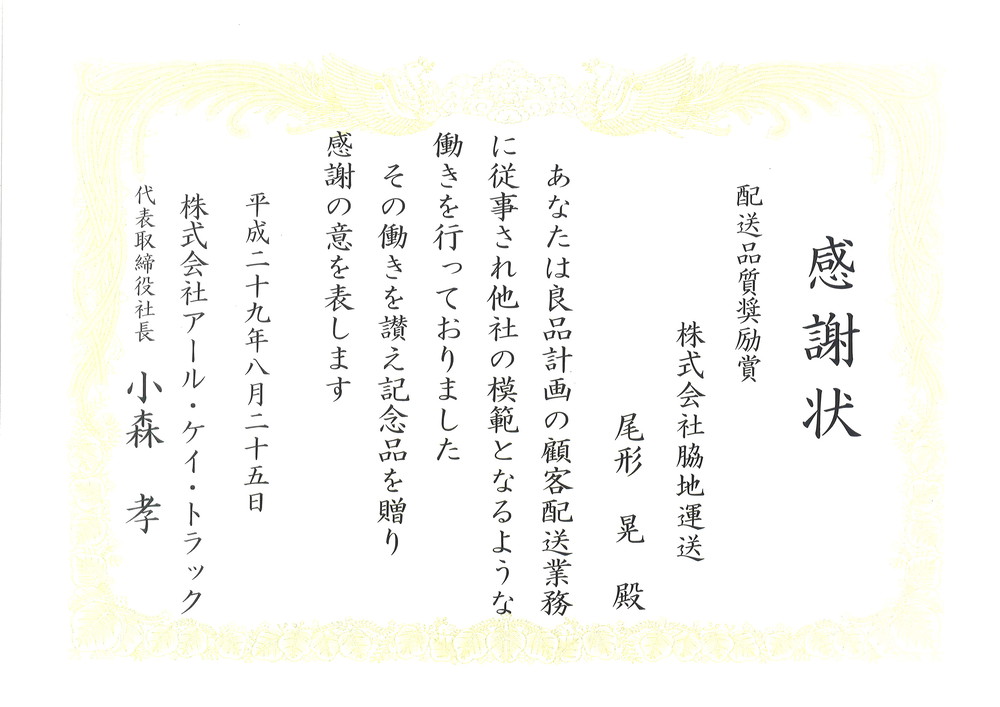 感謝状
配送品質奨励賞
株式会社脇地運送
尾形 晃 殿
あなたは良品計画の顧客配送業務
に従事され他社の模範となるような
働きを行っておりました
その働きを讃え記念品を贈り
感謝の意を表します
平成二十九年八月二十五日
株式会社アール・ケイ・トラック
代表取締役社長 小森 孝